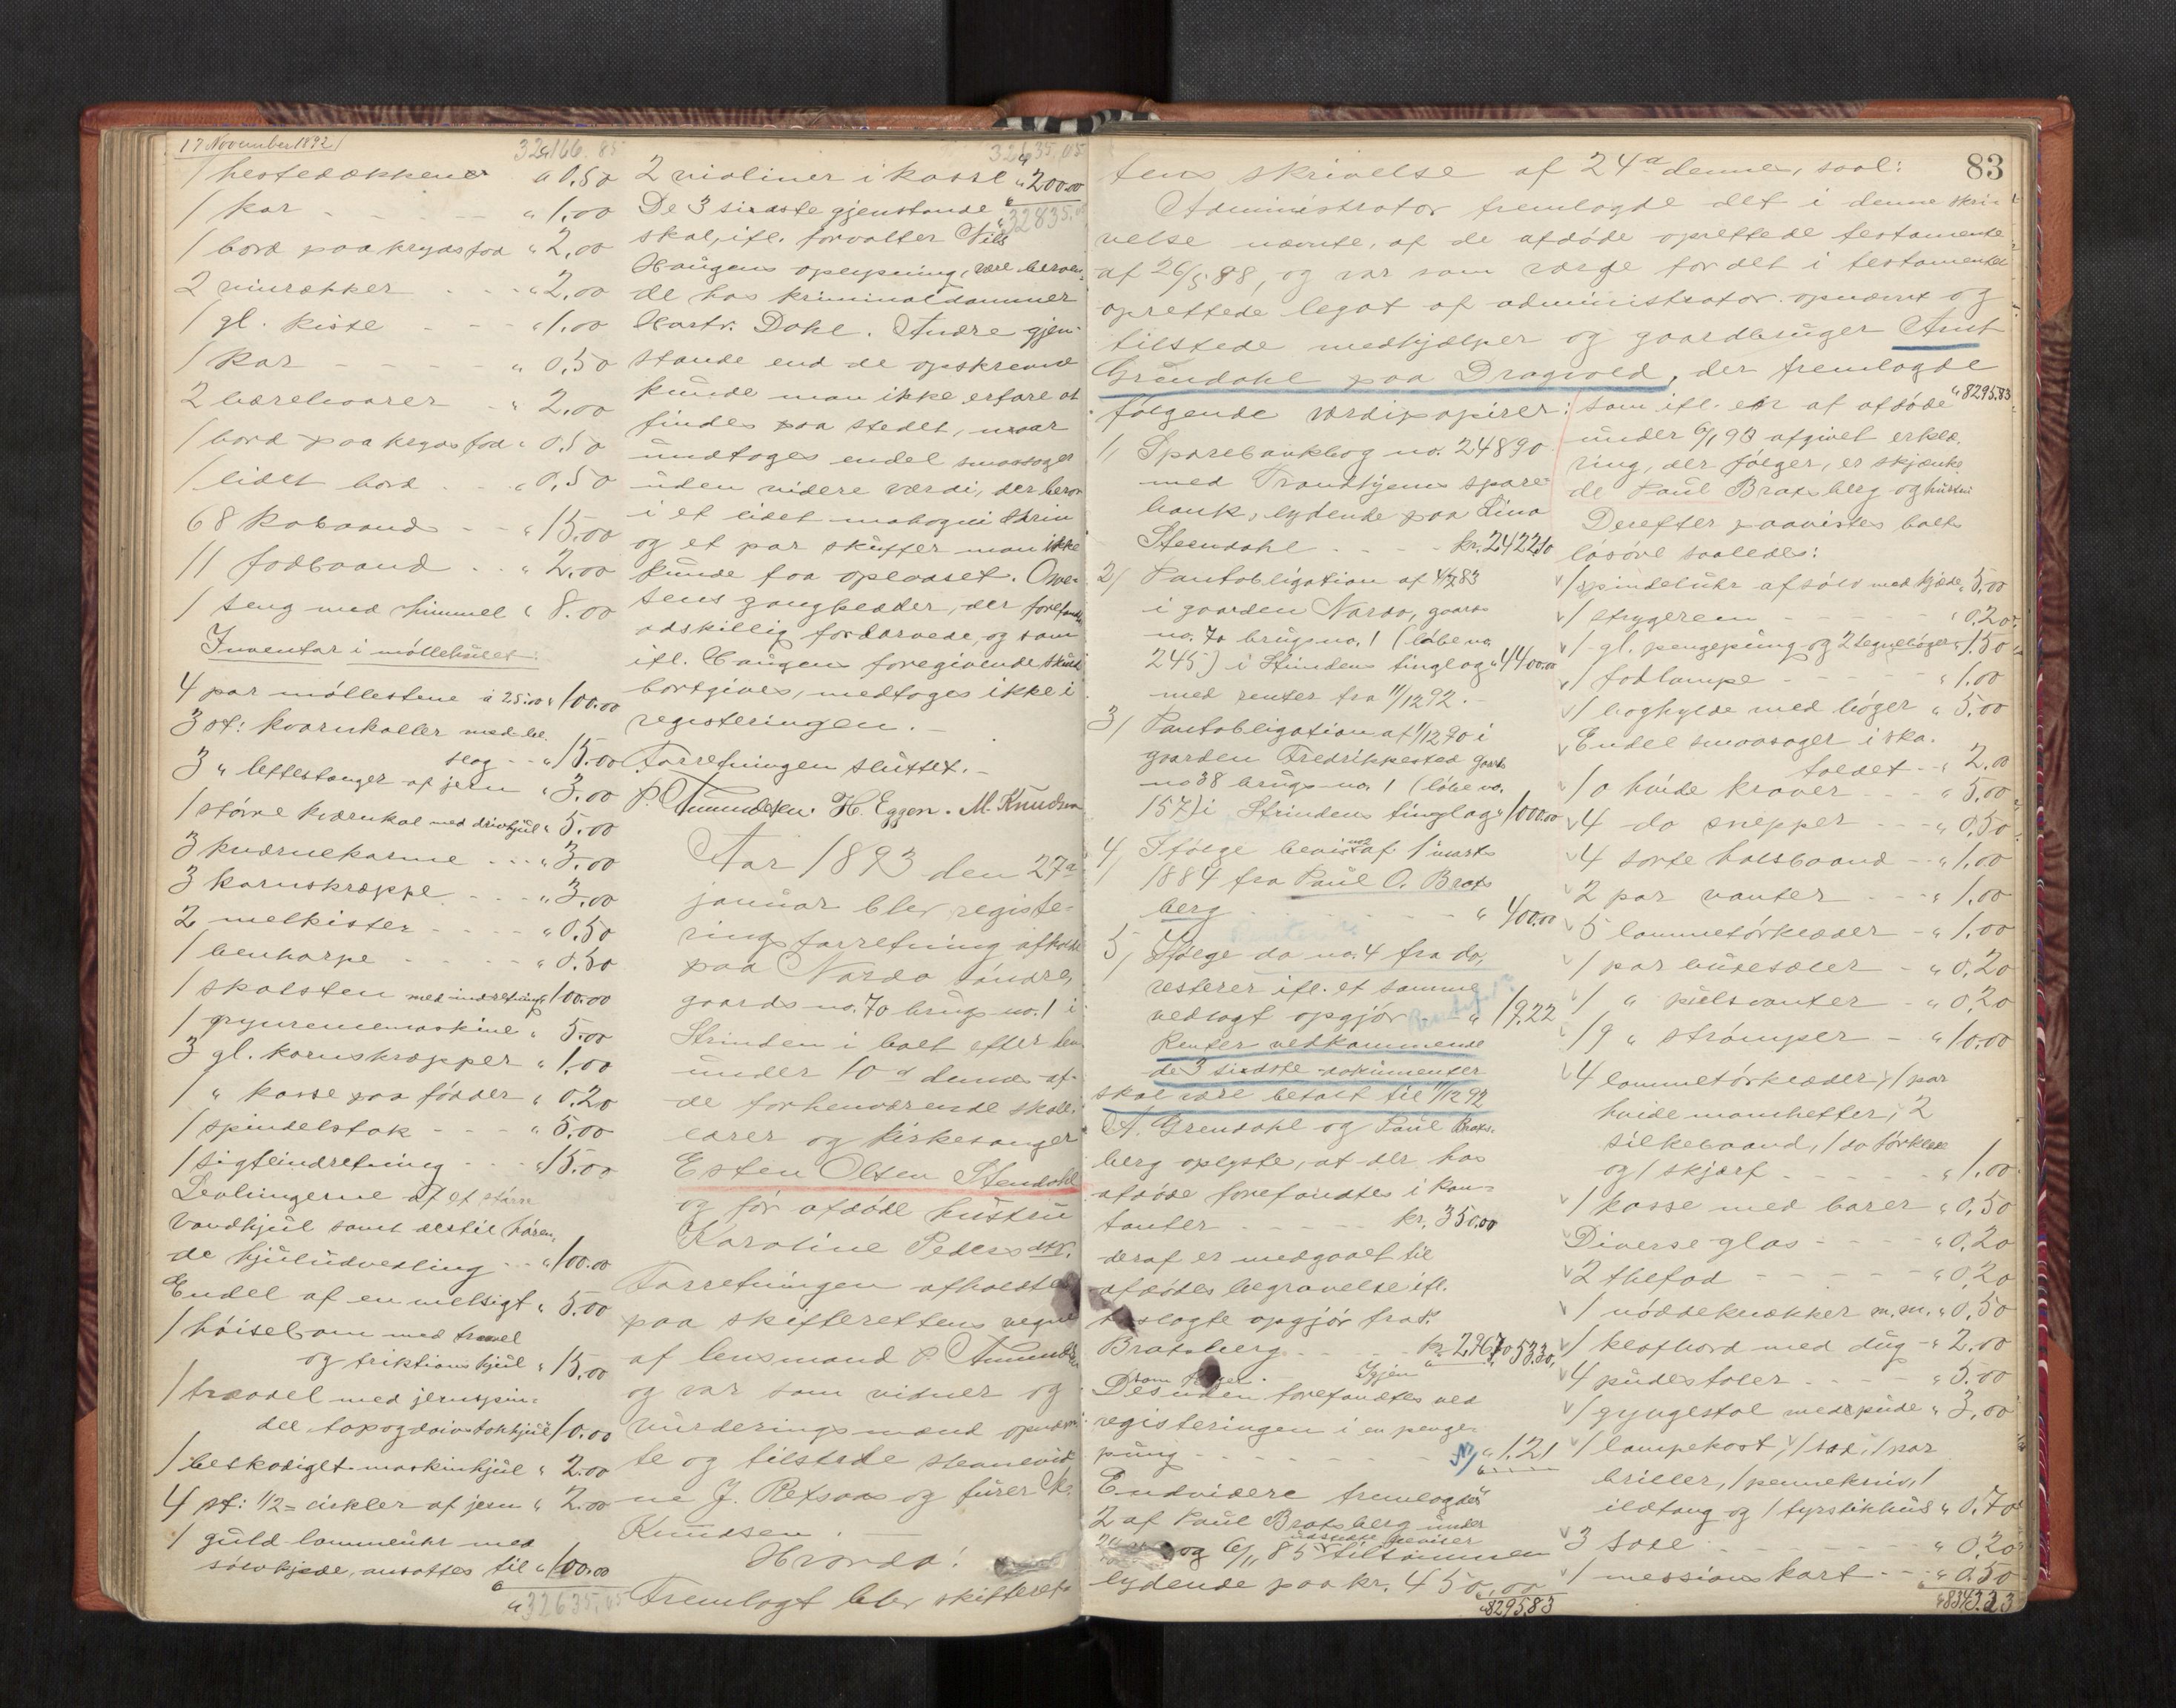 17 November 1892
32,166.85
1 hestedækkener " 0.50
1 kar " 1.00
1 bord paa krydsfod " 2.00
2 vinrækker " 2.00
1 gl. kiste " 1.00
1 kar " 0.50
2 bærebaarer " 2.00
1 bord paa krydsfod " 0.50
1 lidet bord " 0.50
68 kobaand " 15.00
11 fodbaand " 2.00
1 seng med himmel " 8.00
Inventar i möllehuset:
4 par möllestene à 25.00 " 100.00
3 st: kvarnkaller med be-
slag " 15.00
3 " lettestanger af jern " 3.00
1 större kvernkal med drivhjul " 5.00
3 kværnekarme " 3.00
3 kornskræppe " 3.00
2 melkister " 0.50
1 benharpe " 0.50
1 skalsten med indretning " 100.00
1 grynrensemaskine " 5.00
3 gl. kornskræpper " 1.00
1 " kasse paa födder " 0.20
1 spindelstok " 5.00
1 sigteindretning " 15.00
Levningerne af et större
vandhjul samt dertil hören-
de hjuludvexling " 100.00
Endel af en melsigt " 5.00
1 höisebom med
og friktionshjul " 15.00
1 med jernspin-
del top og hjul 10.00
1 beskadiget maskinhjul " 2.00
4 st: 1/2 cirkler af jern " 2.00
1 guld lommeuhr med
sölvkjede, ansattes til " 100.00
" 32635.05
32635,05
2 violiner i kasse " 200.00
De 3 sidste gjenstande " 32835.05
skal, ifl. forvalter Nils
Haugens oplysning, være beroen-
de hos kriminaldommer
Hartv. Dahl. Andre gjen-
stande end de opskrevne
kunde man ikke erfare at
findes paa stedet, naar
undtoges endel smaasager
uden videre værdi, der beror
i et lidet mahogni skrin
og et par skuffer man ikke
kunde faa oplaaset. Ove-
tens gangklæder, der forefandtes
adskillig fordærvede, og som
ifl. Haugens foregivende skulde
bortgives, medtoges ikke i
registeringen. -
Forretningen sluttet. -
P. Amundsen. H. Eggen. M. Knudsen
Aar 1893 den 27de
januar blev registe-
ringsforretning afholdt
paa Nardo söndre,
gaards no. 70 brugs no. 1 i
Strinden i boet efter den
under 10de dennes af-
de forhenværende skole-
lærer og kirkesanger
Esten Olsen Stendahl
og för afdöde hustru
Karoline Pedersdtr.
Forretningen afholdtes
paa skifterettens vegne
af lensmand P. Amundsen
og var som vidner og
vurderingsmænd opnævn-
te og tilstede stenevid-
ne J. Retsaas og furer M.
Knudsen.
Hvorda!
Fremlagt blev skifteret-
83
tens skrivelse af 24de dennes, saal:
Administrator fremlagde det i denne skri-
velse nævnte, af de afdöde oprettede testamente
af 26/5 88, og var som værge for det i testamentet
oprettede legat af administrator opnævnt og
tilstede medhjælper og gaardbruger Arnt
Grendahl paa Dragvold, der fremlagde
fölgende værdipapirer:
1) Sparebankbog no. 24890
med Trondhjems spare-
bank, lydende paa Lina
Steendahl kr. 2422.10
2) Pantobligation af 4/7 83
i gaarden Nardo, gaards
no. 70 brugsno. 1 (löbe no.
245) i Strindens tinglag " 4400.00
med renter fra 11/12 92. -
3) Pantobligation af 11/12 90 i
gaarden Fredrikkested gaards
no 38 brugs no. 1 (löbe no.
157) i Strindens tinglag " 1000.00
4) Ifölge bevis af 1 marts
1884 fra Paul O. Brats-
berg " 400.00
5) Ifölge do no. 4 fra do,
resterer ifl. et samme
vedlagt opgjör " 19.22
Renter vedkommende
de 3 sidste dokumenter
skal være betalt til 11/12 92
A. Grendahl og Paul Brats-
berg oplyste, at der hos
afdöde forefandtes i kon-
tanter kr. 350.00
deraf er medgaaet til
afdödes begravelse ifl.
opgjör fra P.
Bratsberg kr. 296.70 53.30
Igjen
Desuden forefandtes ved
registeringen i en penge-
pung " 1.21
Endvidere fremlagdes
2 af Paul Bratsberg under
udstedte beviser
og 6/11 85 tilsammen
lydende paa kr. 450,00
" 8295.83
" 8295.83
som ifl. en af afdöde
under 6/1 93 afgivet erklæ-
ring, der fölger, er skjænke-
de Paul Bratsberg og hustru
Derefter paavistes boets
lösöre saaledes:
1 spindeluhr af sölv med kjæde " 5.00
1 strygerem " 0.20
1 gl. pengepung og 2 tegneböger " 1.50
1 fodlampe " 1.00
1 boghylde med böger " 5.00
Endel smaasager i ska-
toldet " 2.00
10 hvide kraver " 5.00
4 do snepper " 0.50
4 sorte halsbaand " 1.00
2 par vanter " 1.00
5 lommetörklæder " 1.00
1 par buxesæler " 0.20
1 " pulsvanter " 0.20
19 " strömper " 10.00
4 lommetörklæder, 1 par
hvide manchetter, 2
silkebaand, 1 do törklæde
og 1 skjærf " 1.00
1 kasse med barer " 0.50
Diverse glas " 0.20
2 thefad " 0.20
1 nöddeknækker m.m. " 0.50
1 klafbord med dug " 2.00
4 pudestoler " 5.00
1 gyngestol med pude " 3.00
1 lampekost, 1 sax, 1 par
briller, 1 pennekniv, 1
ildtang og 1 fyrstikhus " 0.70
3 sole " 0.20
1 missions kart " 0.50
" 8343.23